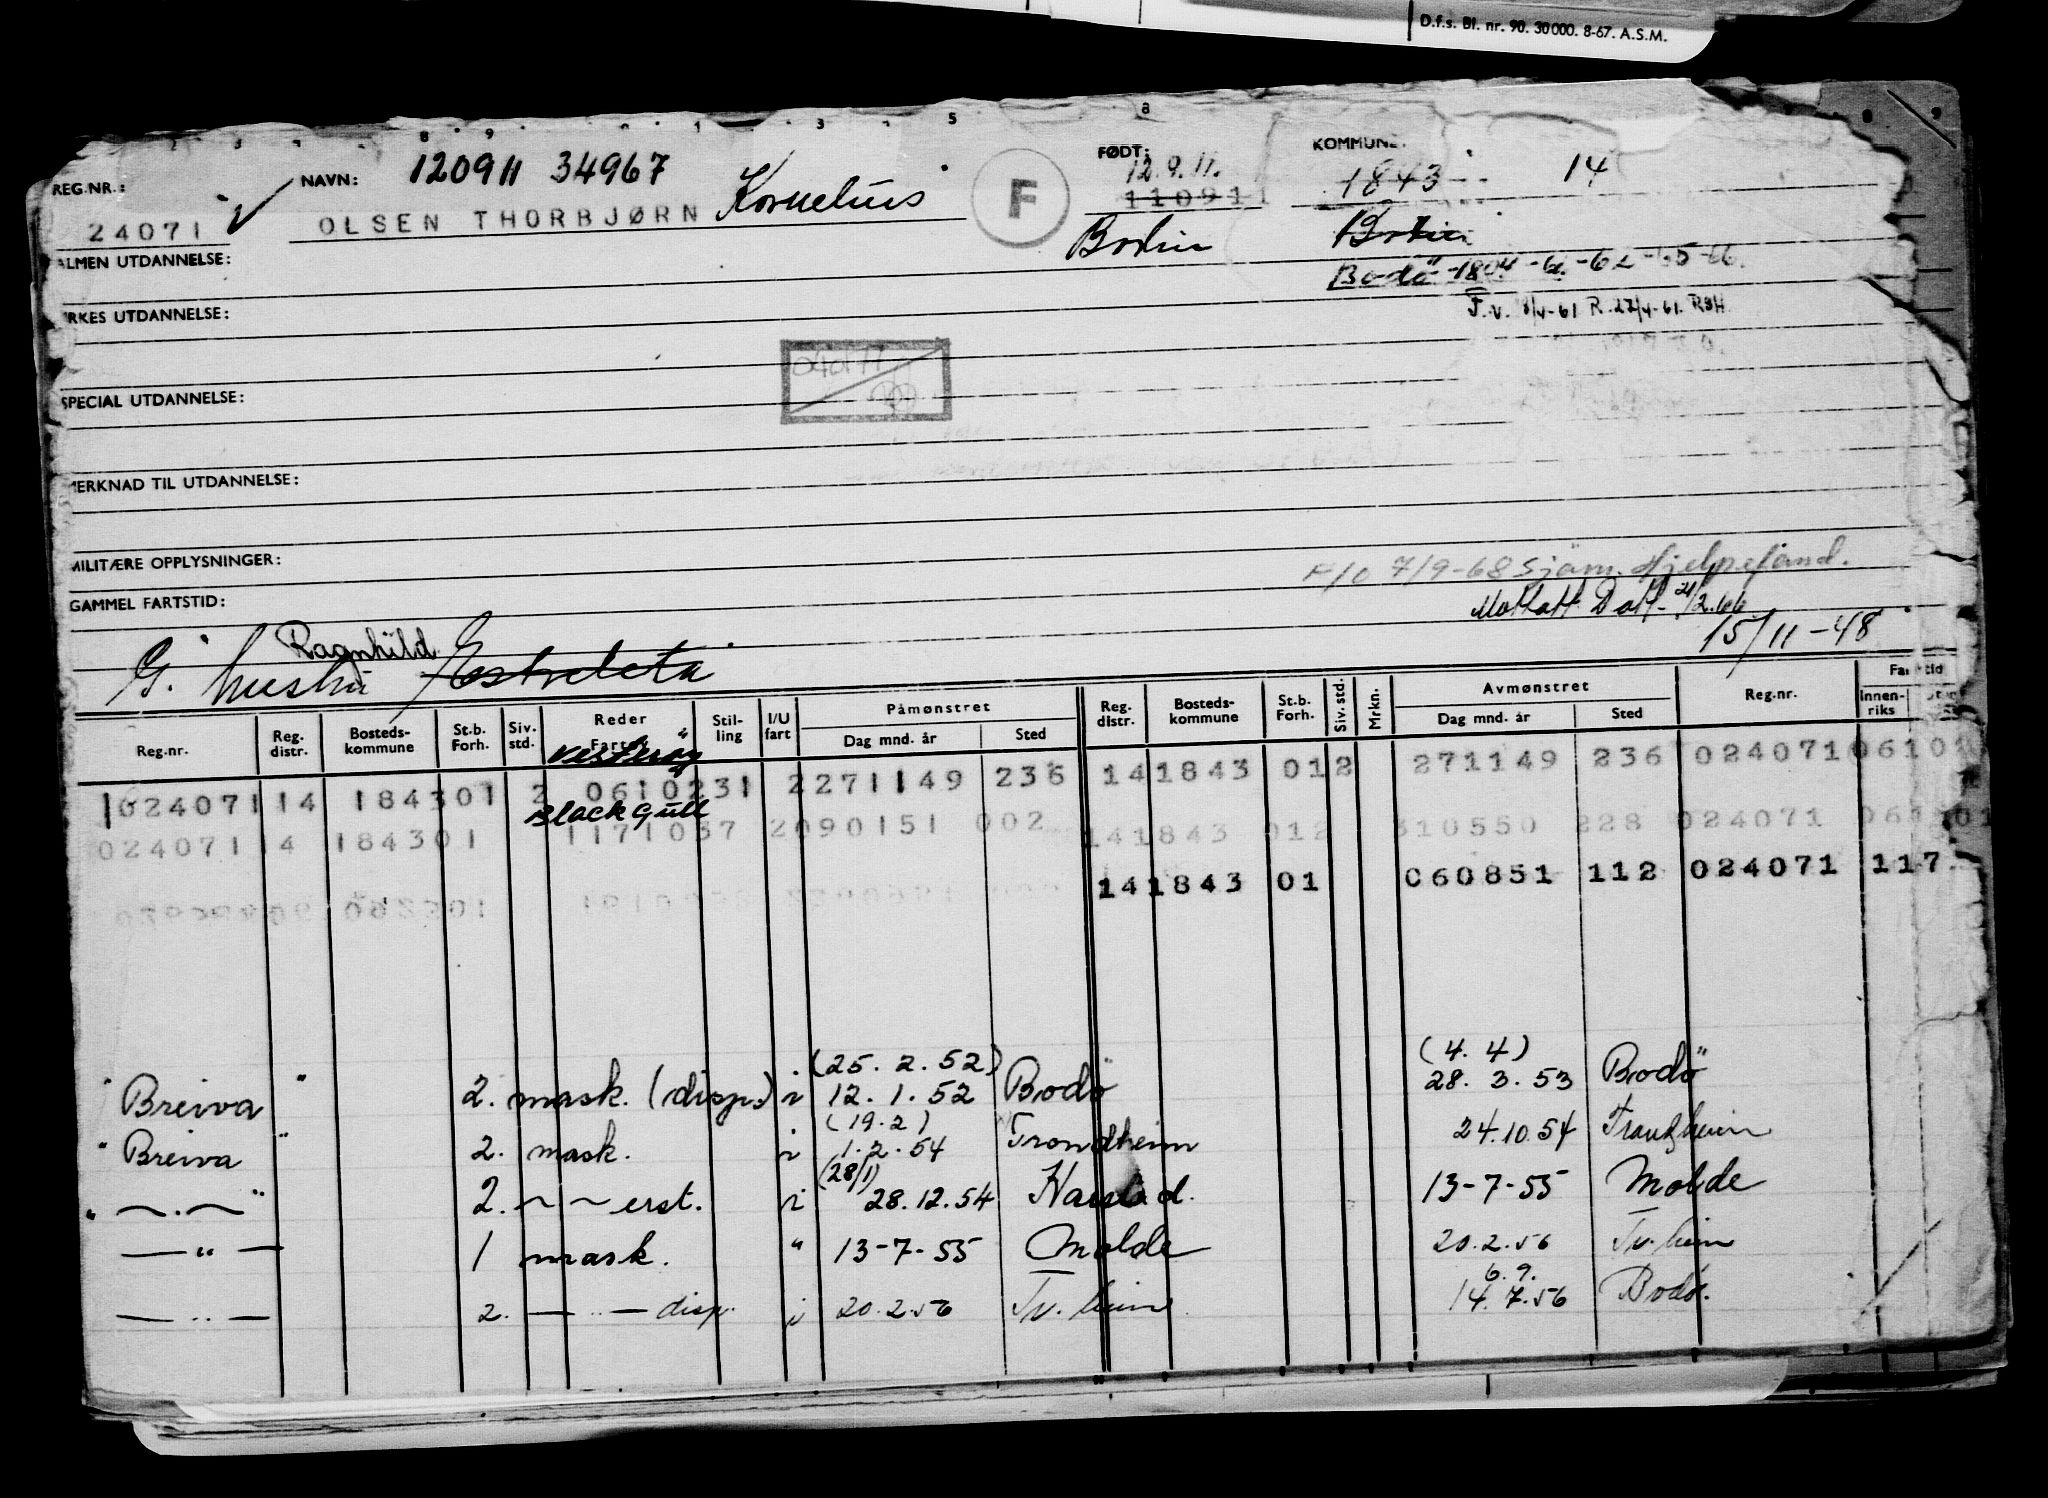 D.f.s. Bl. nr. 90. 30000. 8-67. A.S.M.
REG.NR.: 24071 NAVN: 120911 34967 F FØDT: 12.9.11. KOMMUNE: 1843 14
OLSEN THORBJØRN Kornelius 110911
Bodin Bodin
ALMEN UTDANNELSE: Bodö -1804 -61 -62 -65 -66.
YRKES UTDANNELSE: F.v. 8/4-61 R. 27/4-61. RSH
SPECIAL UTDANNELSE:
MERKNAD TIL UTDANNELSE:
MILITÆRE OPPLYSNINGER: F/O 7/9-68 Sjöm. Hjelpefond.
GAMMEL FARTSTID: 21/2.66
15/11-48
G. hustru Ragnhild
Reg.nr. Reg. distr. Bosteds- kommune St.b. Forh. Siv. std. Reder Fartøy Stil- ling I/U fart Påmønstret Dag mnd. år Sted Reg. distr. Bosteds- kommune St.b. Forh. Siv. std. Mrkn. Avmønstret Dag mnd. år Sted Reg.nr. Fartstid Innen- riks
"Vesteröy"
024071 14 1843 01 2 0610231 2 271149 236 14 1843 01 2 271149 236 024071 06101
Black Gull
024071 14 1843 01 1171037 2 090151 002 14 1843 01 2 310550 228 024071
14 1843 01 060851 112 024071 117
(25. 2. 52) (4. 4)
"Breiva" 2. mask. (disp.) i 12. 1. 52 Bodö 28. 3. 53 Bodö
(19.2)
"Breiva" 2. mask. i 1. 2. 54 Trondheim 24.10.54 Trondheim
(28/1)
" — . — " 2. — — erst. i 28.12.54 Harstad. 13-7-55 Molde
— " — 1 mask. " 13-7-55 Molde 20.2.56 Tr.heim
6. 9.
— " — 2. — " — disp. i 20.2.56 Tr.heim 14.7.56 Bodø.